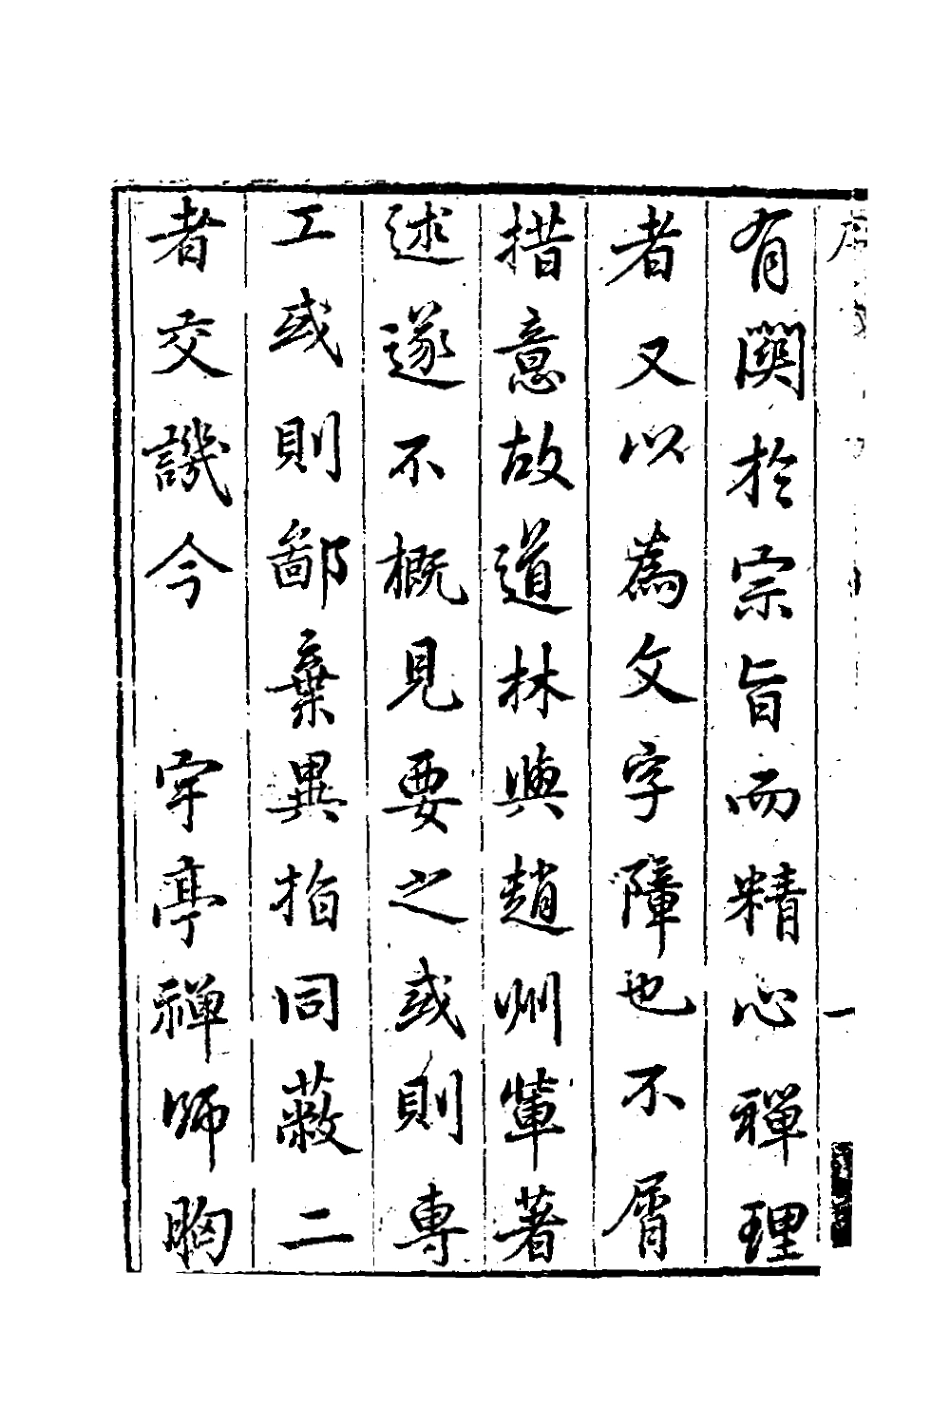 有關於宗旨而精心禪理
者又以為文字障也不屑
措意故道林與趙州輩著
述遂不概見要之或則專
工或則鄙棄異指同蔽二
者交譏今　宇亭禪師胸
一